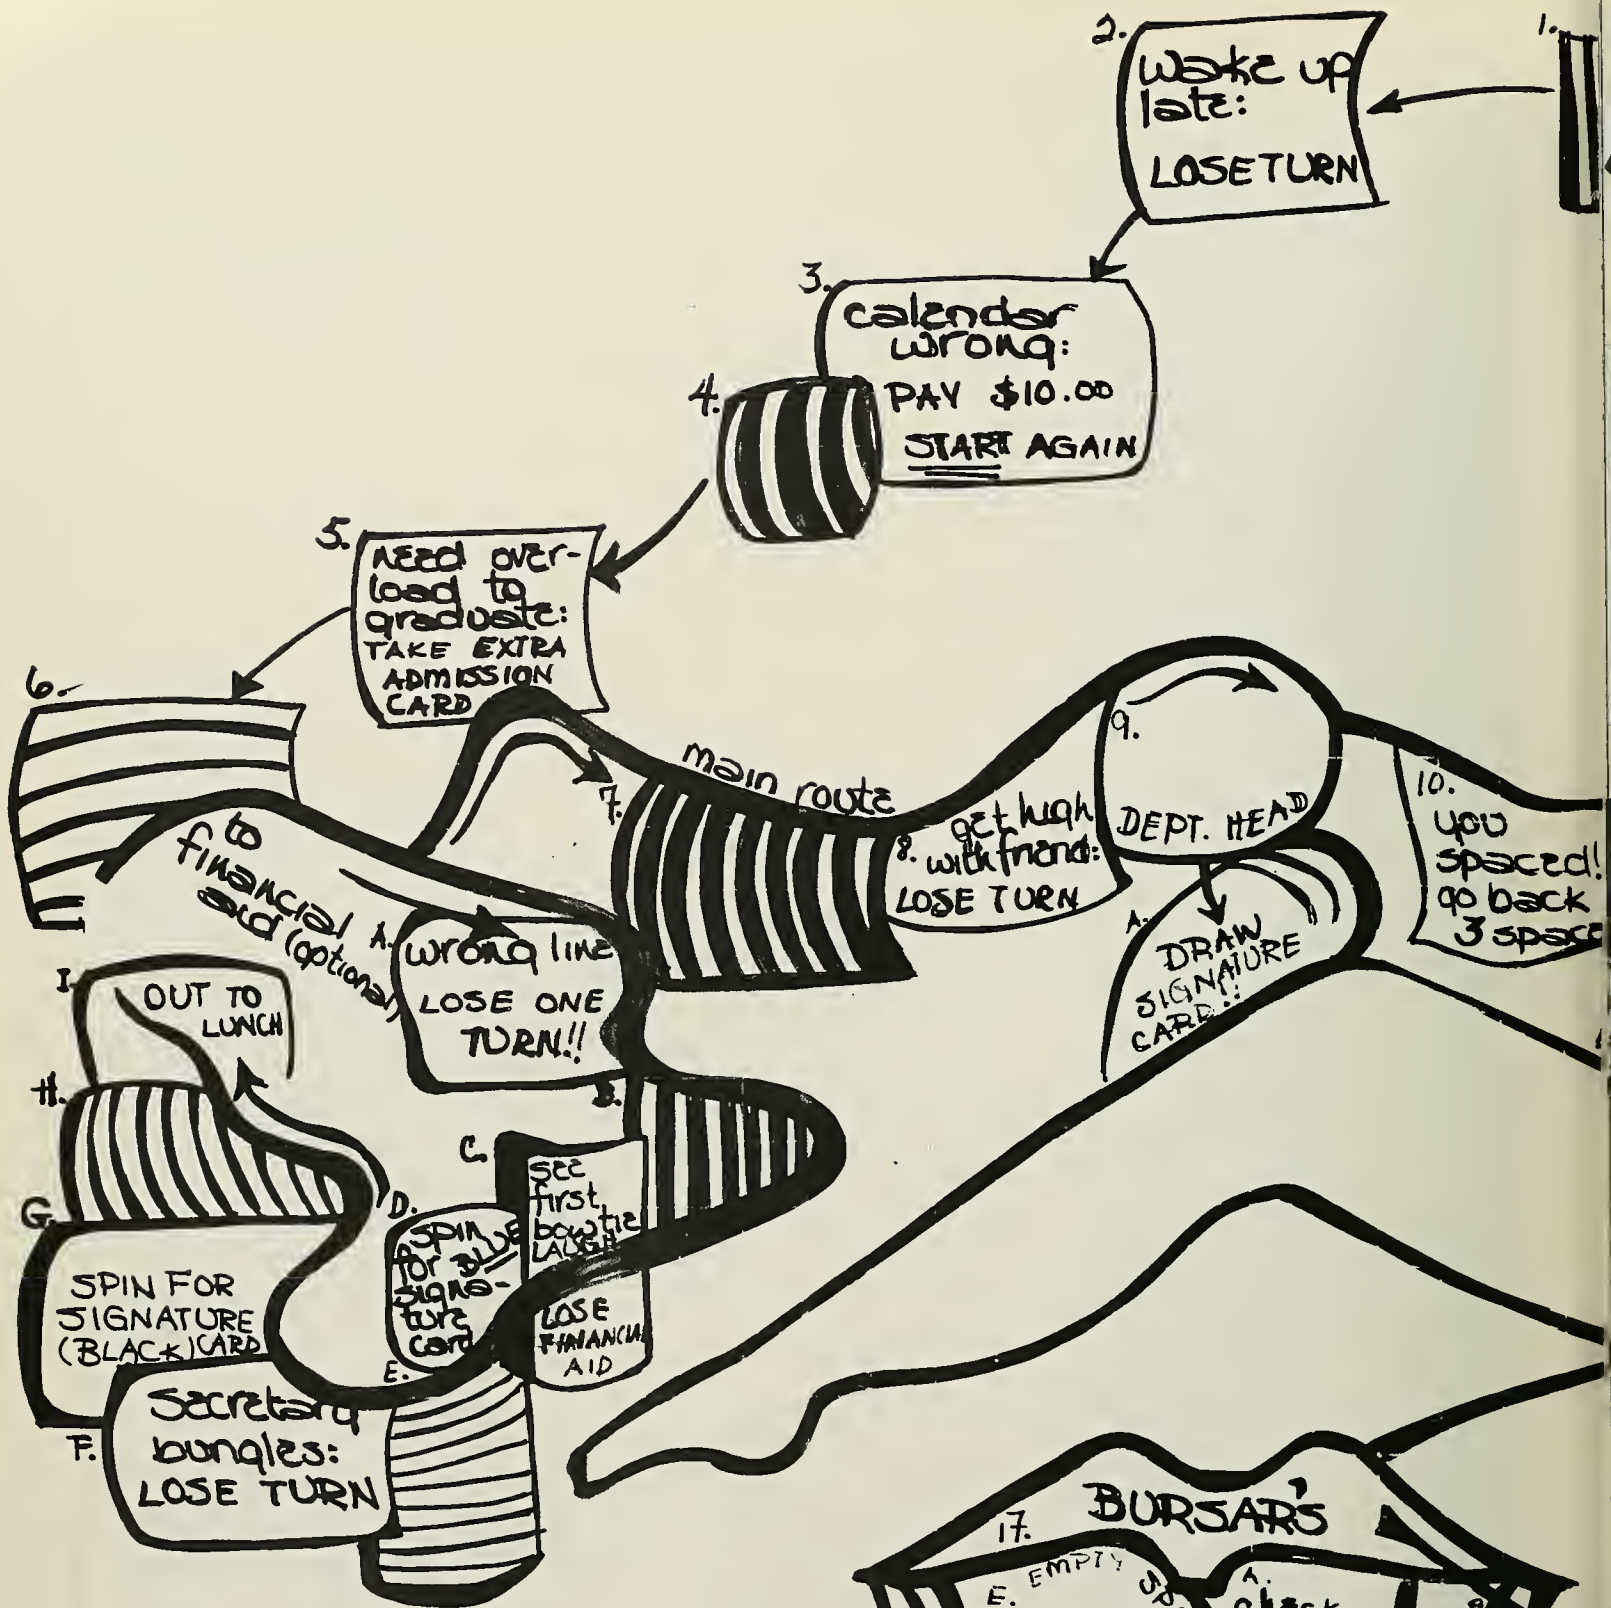 1.
2.
wake up
late:
LOSE TURN
3.
calendar
wrong:
PAY $10.00
START AGAIN
4.
5.
need over-
load to
graduate:
TAKE EXTRA
ADMISSION
CARD
6.
main route
7.
8. get high
with friend:
LOSE TURN
9.
DEPT. HEAD
A.
DRAW
SIGNATURE
CARD!!
10.
you
spaced!
go back
3 space
to
financial
aid (optional)
A.
wrong line
LOSE ONE
TURN!!
B.
C.
see
first
bowtie
LAUGH
LOSE
FINANCIAL
AID
D.
SPIN
for BLUE
signa-
ture
card
E.
F.
Secretary
bungles:
LOSE TURN
G.
SPIN FOR
SIGNATURE
(BLACK) CARD
H.
I.
OUT TO
LUNCH
BURSAR'S
17.
E. EMPTY
A.
check